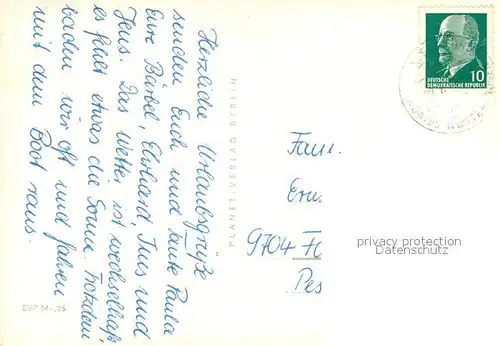 Herzliche Urlaubsgrüße
senden Euch und Tante Paula
Eure Bärbel, Ekkehard, Ines und
Jens. Das Wetter ist wechselhaft,
es fehlt etwas die Sonne. Trotzdem
baden wir oft und fahren
mit dem Boot raus.
EVP M -,25
PLANET-VERLAG BERLIN
DEUTSCHE
DEMOKRATISCHE REPUBLIK
10
Fam.
9704
privacy protection
Datenschutz